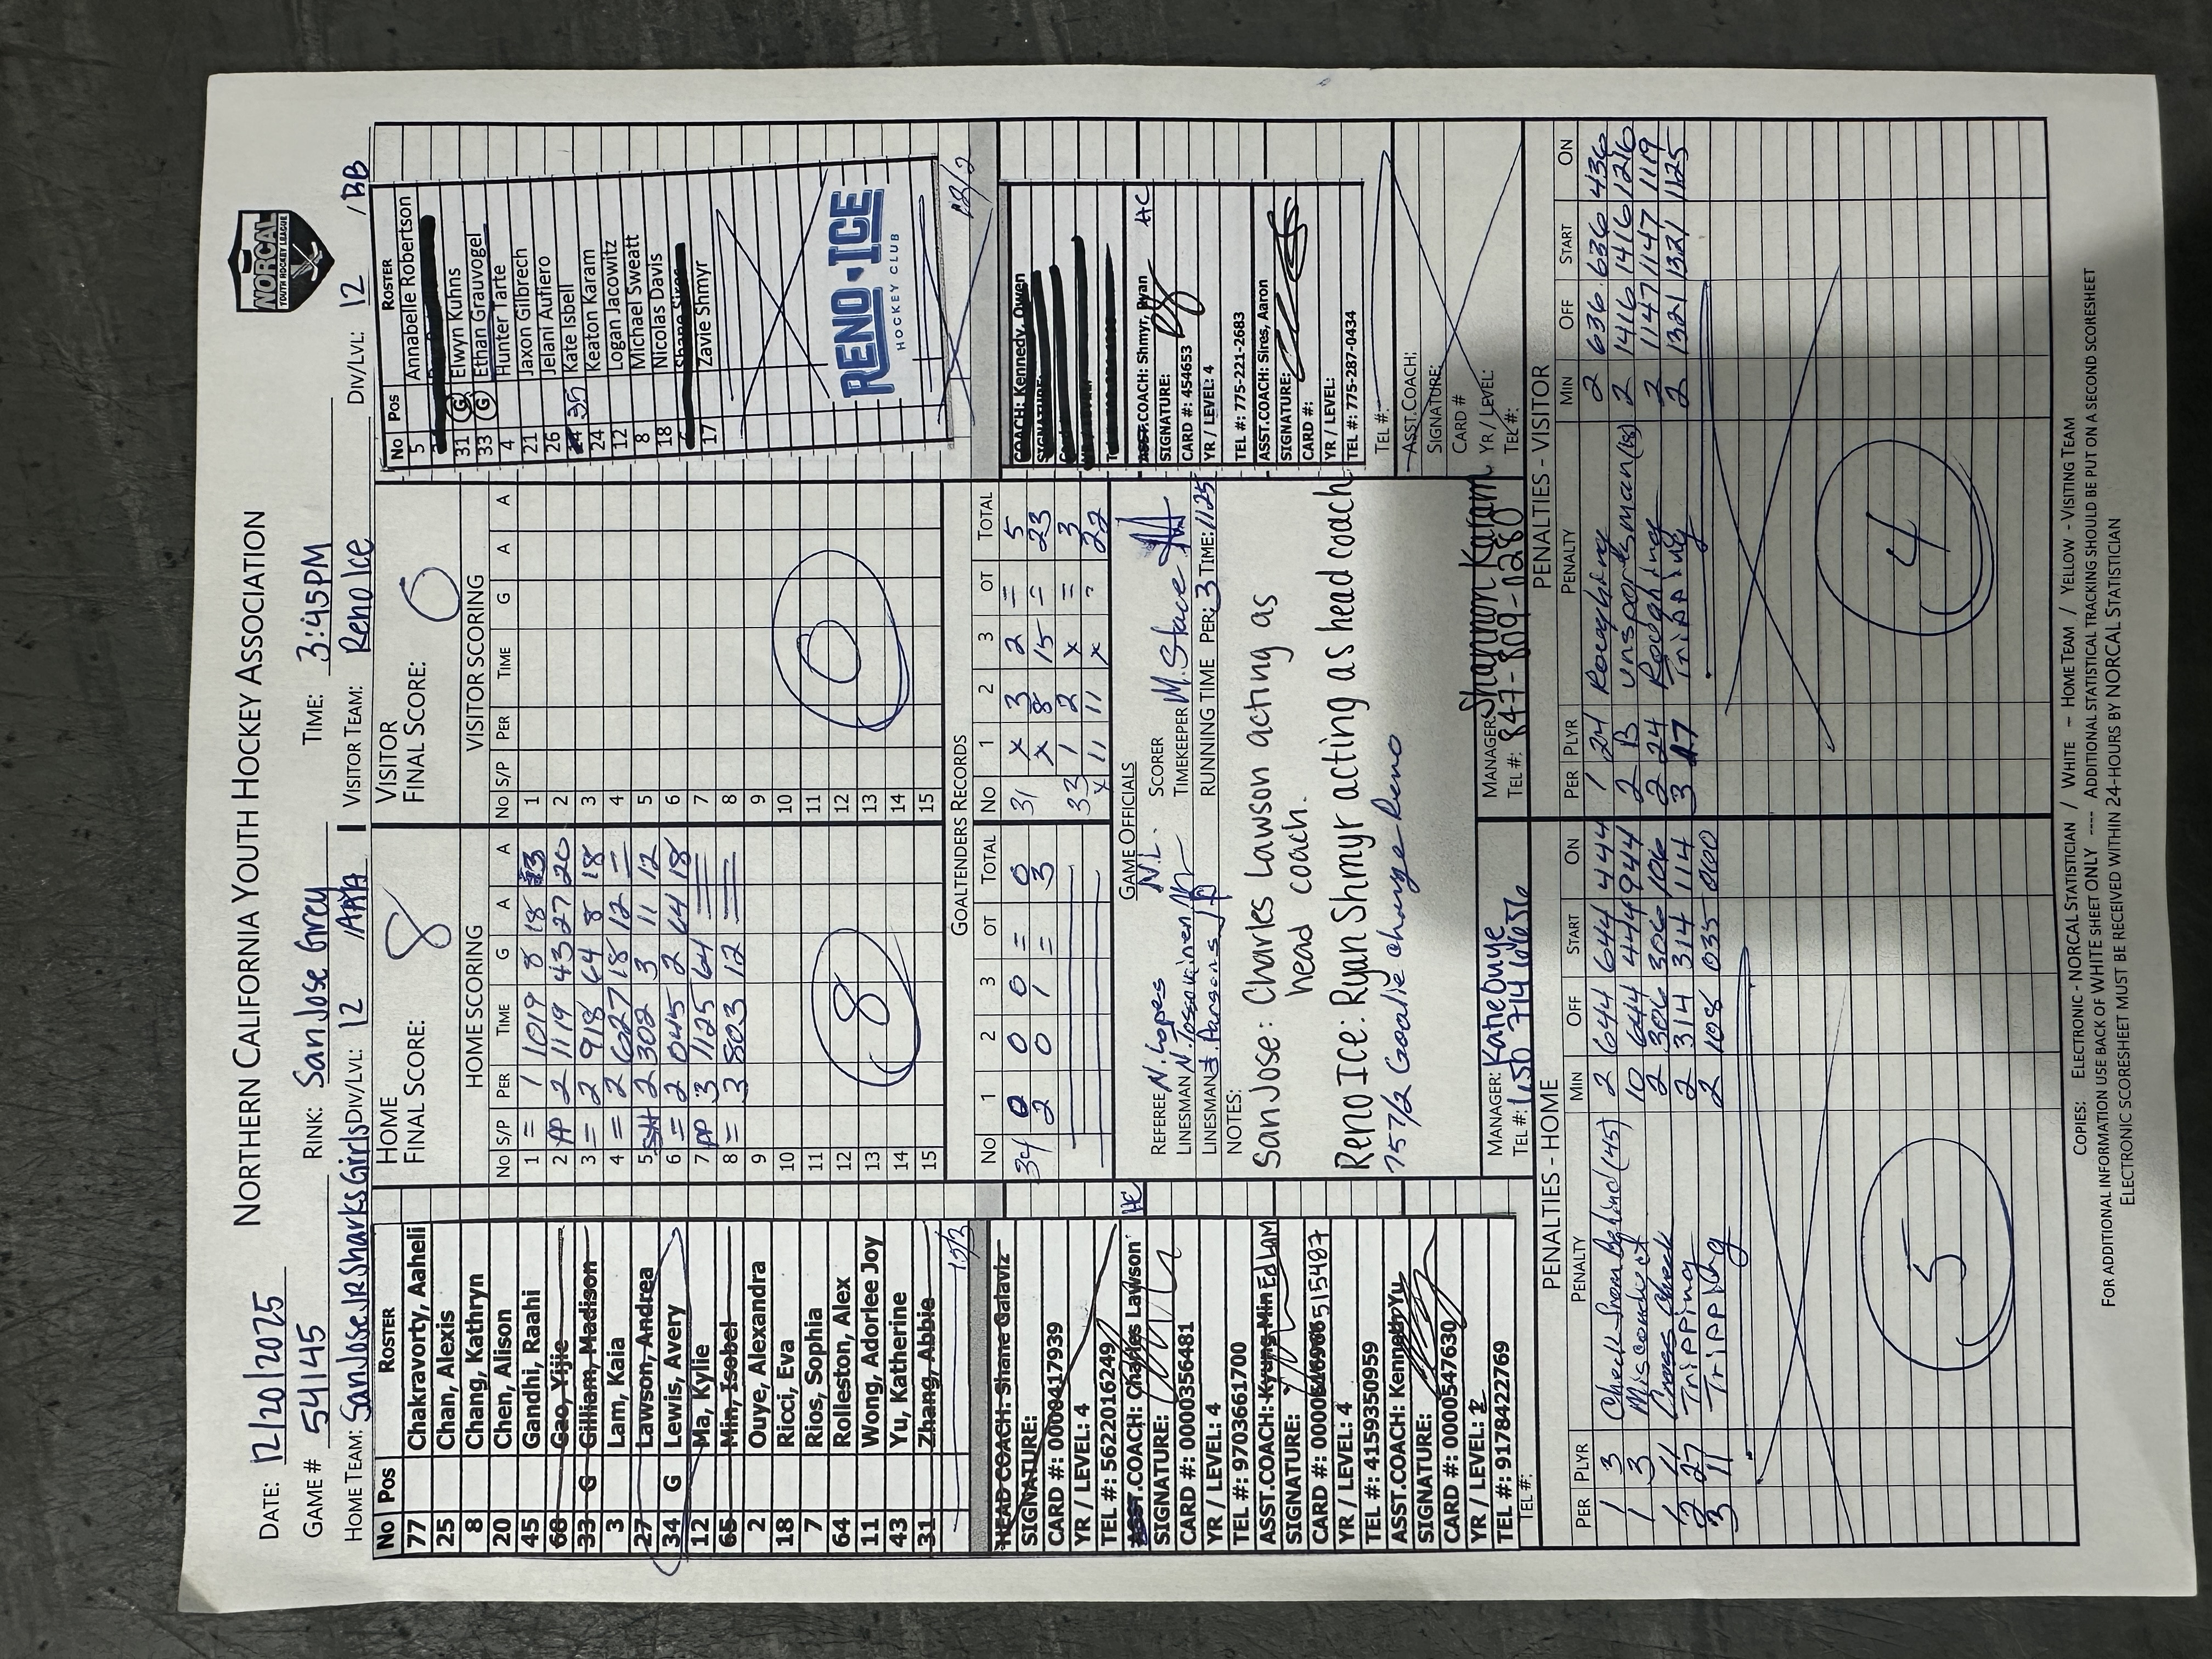 NORTHERN CALIFORNIA YOUTH HOCKEY ASSOCIATION
NORCAL
YOUTH HOCKEY LEAGUE
DATE: 12/20/2025
GAME # 54145 RINK: San Jose Grey TIME: 3:45PM
HOME TEAM: San Jose Jr Sharks Girls DIV/LVL: 12 /AAA VISITOR TEAM: Reno Ice DIV/LVL: 12 /BB
No Pos ROSTER
77 Chakravorty, Aaheli
25 Chan, Alexis
8 Chang, Kathryn
20 Chen, Alison
45 Gandhi, Raahi
68 Gao, Yijie
33 G Gilliam, Madison
3 Lam, Kaia
27 Lawson, Andrea
34 G Lewis, Avery
12 Ma, Kylie
65 Min, Isobel
2 Ouye, Alexandra
18 Ricci, Eva
7 Rios, Sophia
64 Rolleston, Alex
11 Wong, Adorlee Joy
43 Yu, Katherine
31 Zhang, Abbie
15/2
HEAD COACH: Shane Galaviz
SIGNATURE:
CARD #: 0000417939
YR / LEVEL: 4
TEL #: 5622016249
ASST.COACH: Charles Lawson HC
SIGNATURE:
CARD #: 0000356481
YR / LEVEL: 4
TEL #: 9703661700
ASST.COACH: Kyung Min Ed Lam
SIGNATURE:
CARD #: 515487
YR / LEVEL: 4
TEL #: 4159350959
ASST.COACH: Kenneth Yu
SIGNATURE:
CARD #: 0000547630
YR / LEVEL:
TEL #: 9178422769
TEL #:
HOME
FINAL SCORE: 8
HOME SCORING
No S/P PER TIME G A A
1 = 1 1019 8 18
2 PP 2 1119 43 27 20
3 = 2 918 64 8 18
4 = 2 627 18 12 =
5 SH 2 302 3 11 12
6 = 2 045 2 64 18
7 PP 3 1125 64 =
8 = 3 803 12 =
9
10
11
12
13
14
15
8
VISITOR
FINAL SCORE: 0
VISITOR SCORING
No S/P PER TIME G A A
1
2
3
4
5
6
7
8
9
10
11
12
13
14
15
0
No Pos ROSTER
5 Annabelle Robertson
31 G Elwyn Kuhns
33 G Ethan Grauvogel
4 Hunter Tarte
21 Jaxon Gilbrech
26 Jelani Aufiero
35 Kate Isbell
24 Keaton Karam
12 Logan Jacowitz
8 Michael Sweatt
18 Nicolas Davis
6 Shane Sires
17 Zavie Shmyr
RENO ICE
HOCKEY CLUB
GOALTENDERS RECORDS
No 1 2 3 OT TOTAL No 1 2 3 OT TOTAL
34 0 0 0 = 0 31 x 3 2 = 5
2 0 1 = 3 x 8 15 = 23
33 1 2 x = 3
x 11 11 x = 22
GAME OFFICIALS
REFEREE N. Lopes N.L. SCORER
LINESMAN TIMEKEEPER M. Stace
LINESMAN J. Parsons JP RUNNING TIME PER: 3 TIME: 1125
NOTES:
San Jose: Charles Lawson acting as
head coach.
Reno Ice: Ryan Shmyr acting as head coach
757/2 Goalie change Reno
COACH: Kennedy, Owen
SIGNATURE:
ASST.COACH: Shmyr, Ryan HC
SIGNATURE:
CARD #: 454653
YR / LEVEL: 4
TEL #: 775-221-2683
ASST.COACH: Sires, Aaron
SIGNATURE:
CARD #:
YR / LEVEL:
TEL #: 775-287-0434
TEL #:
ASST.COACH:
SIGNATURE:
CARD #
YR / LEVEL:
TEL #:
MANAGER: Katie Ouye
TEL #: 650 714
MANAGER: Shannon Karam
TEL #: 847-809-0280
PENALTIES - HOME
PER PLYR PENALTY MIN OFF START ON
1 3 Check from Behind (45) 2 644 644 444
1 3 Misconduct 10 644 444 944
1 11 Cross Check 2 306 306 106
2 27 Tripping 2 314 314 114
3 11 Tripping 2 108 035 000
5
PENALTIES - VISITOR
PER PLYR PENALTY MIN OFF START ON
1 24 Roughing 2 636 636 436
2 B Unsportsman (18) 2 1416 1416 1216
2 24 Roughing 2 1147 1147 1119
3 17 Tripping 2 1321 1321 1125
4
COPIES: ELECTRONIC - NORCAL STATISTICIAN / WHITE – HOME TEAM / YELLOW - VISITING TEAM
FOR ADDITIONAL INFORMATION USE BACK OF WHITE SHEET ONLY ---- ADDITIONAL STATISTICAL TRACKING SHOULD BE PUT ON A SECOND SCORESHEET
ELECTRONIC SCORESHEET MUST BE RECEIVED WITHIN 24-HOURS BY NORCAL STATISTICIAN